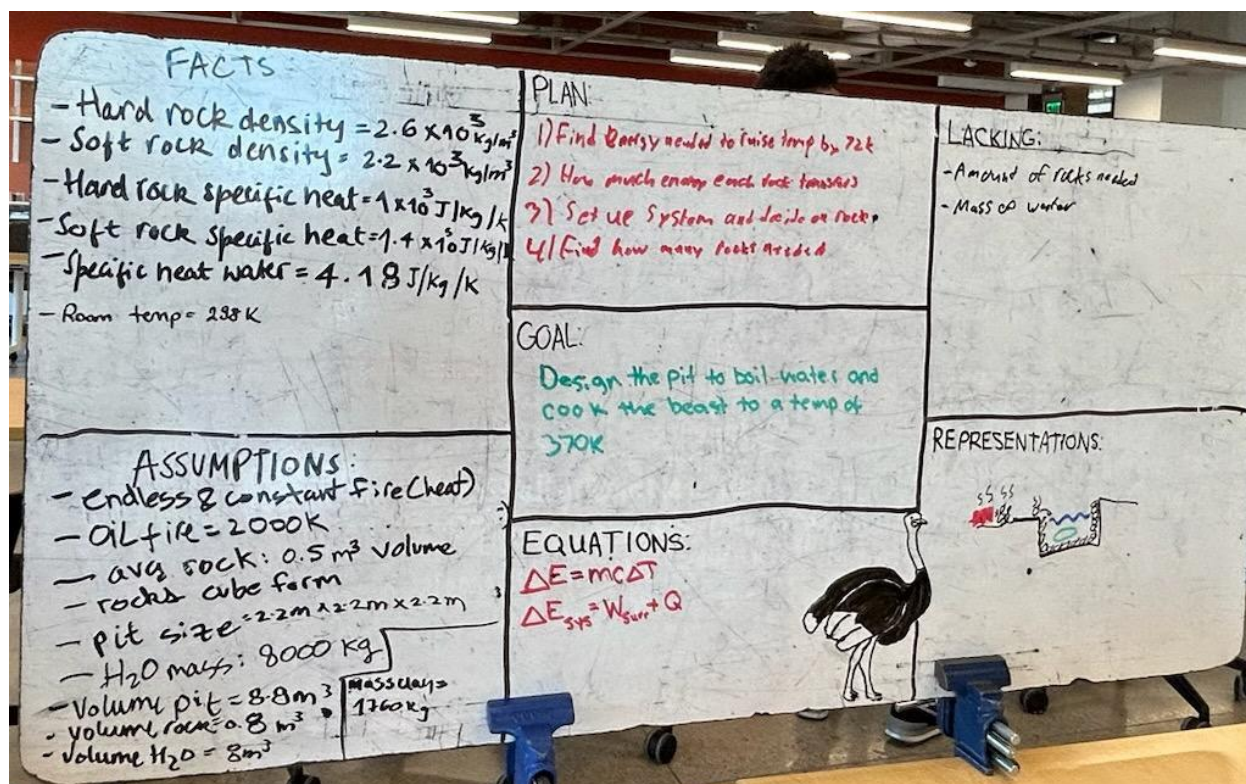 FACTS:
- Hard rock density = 2.6 x 10³ kg/m³
- Soft rock density = 2.2 x 10³ kg/m³
- Hard rock specific heat = 1 x 10³ J/kg/k
- Soft rock specific heat = 1.4 x 10³ J/kg/
- Specific heat water = 4.18 J/kg/K
- Room temp = 298 K
ASSUMPTIONS:
- endless & constant fire (heat)
- oil fire = 2000K
- avg rock: 0.5 m³ volume
- rocks cube form
- pit size = 2.2m x 2.2m x 2.2m
- H₂O mass: 8000 kg
- Volume pit = 8.8m³
- volume rock = 0.8 m³
- volume H₂O = 8m³
mass clay =
1760kg
PLAN:
1) Find Energy needed to raise temp by 72k
2) How much energy each rock transfers
3) Set up System and decide on rock.
4) Find how many rocks needed
GOAL:
Design the pit to boil water and
cook the beast to a temp of
370K
EQUATIONS:
ΔE = mcΔT
ΔE sys = W surr + Q
LACKING:
- Amount of rocks needed
- Mass of water
REPRESENTATIONS: